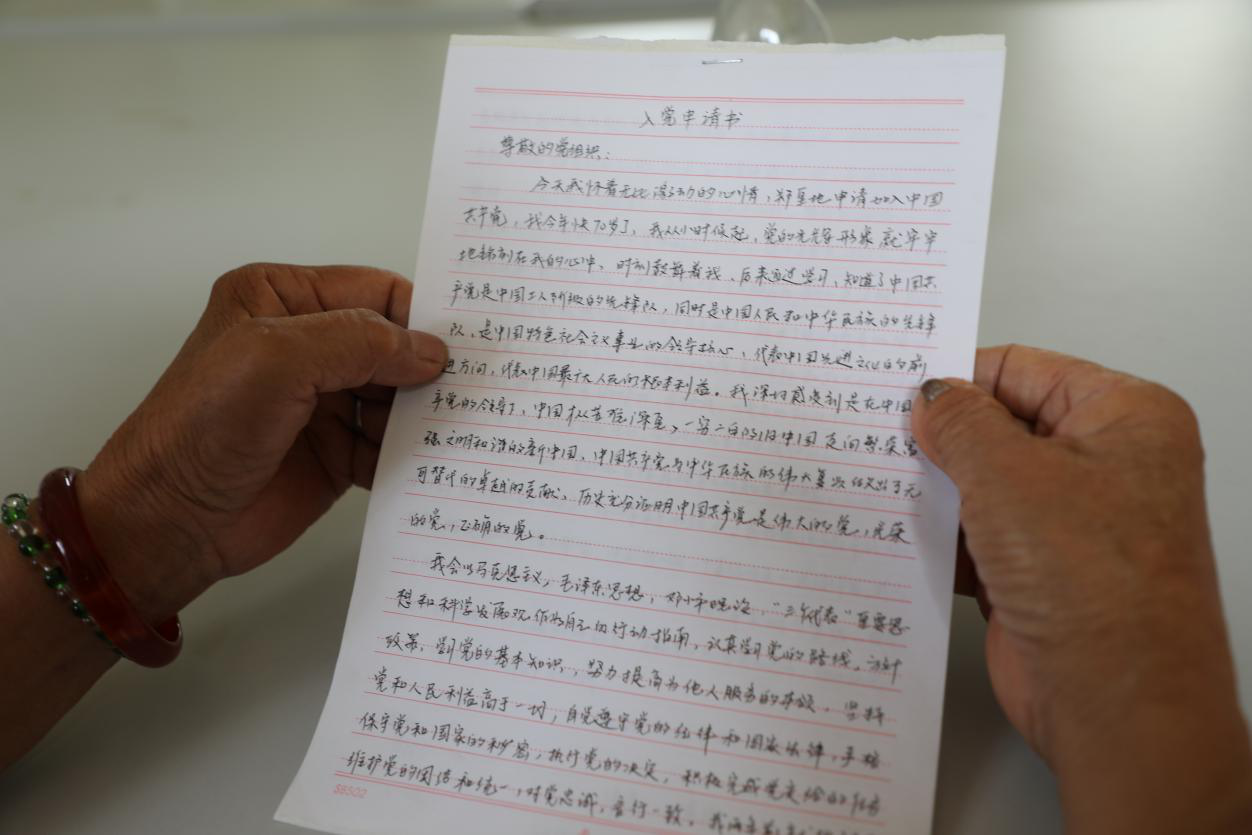 入党申请书
尊敬的党组织：
今天我怀着无比激动的心情，郑重地申请加入中国
共产党，我今年快70岁了，我从小时候起，党的光辉形象就牢牢
地铭刻在我的心中、时刻鼓舞着我、后来通过学习、知道了中国共
产党是中国工人阶级的先锋队，同时是中国人民和中华民族的先锋
队、是中国特色社会主义事业的领导核心、代表中国先进文化的前
进方向，代表中国最广大人民的根本利益。我深切感受到是在中国
产党的领导下、中国从苦难深重、一穷二白的旧中国走向繁荣富
强文明和谐的新中国、中国共产党为中华民族的伟大复兴做出了无
可替代的卓越的贡献、历史充分证明中国共产党是伟大的党，光荣
的党，正确的党。
我会以马克思主义，毛泽东思想，邓小平理论，“三个代表”重要思
想和科学发展观作为自己的行动指南，认真学习党的路线、方针
政策、学习党的基本知识，努力提高为他人服务的本领，坚持
党和人民利益高于一切，自觉遵守党的纪律和国家法律，严格
保守党和国家的秘密，执行党的决定，积极完成党交给的任务
维护党的团结和统一，对党忠诚，言行一致，我
SBS02